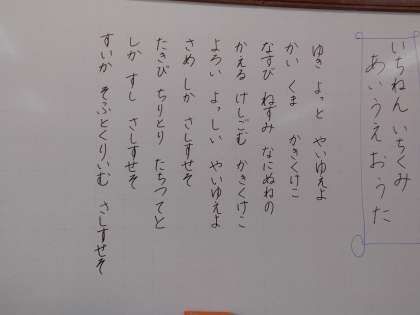 いちねん いちくみ
あいうえおうた
ゆき よっと やいゆえよ
かい くま かきくけこ
なすび ねずみ なにぬねの
かえる けしごむ かきくけこ
よろい よっしい やいゆえよ
さめ しか さしすせそ
たきび ちりとり たちつてと
しか すし さしすせそ
すいか そふとくりいむ さしすせそ